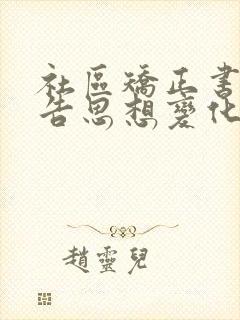 社區矯正書
告思想變化
趙靈兒